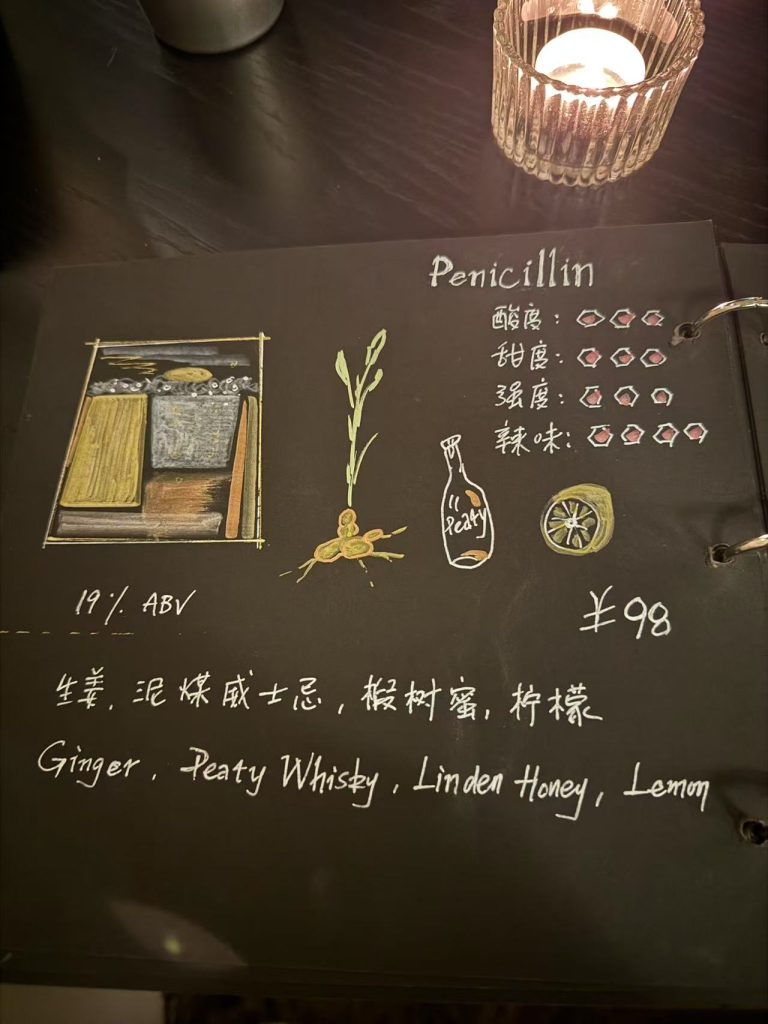 Penicillin
酸度:
甜度:
强度:
辣味:
Peaty
19% ABV
¥98
生姜, 泥煤威士忌, 椴树蜜, 柠檬
Ginger, Peaty Whisky, Linden Honey, Lemon